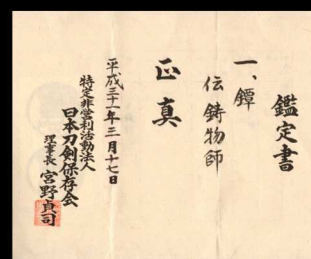 鑑定書
一、鐔
伝 鋳物師
正真
平成三十一年三月十七日
特定非営利活動法人
日本刀剣保存会
理事長 宮野貞司